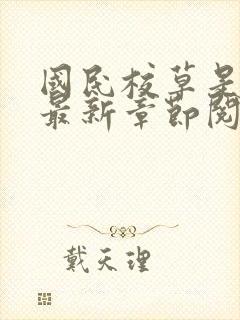 國民校草是
最新章節閱
戴天理